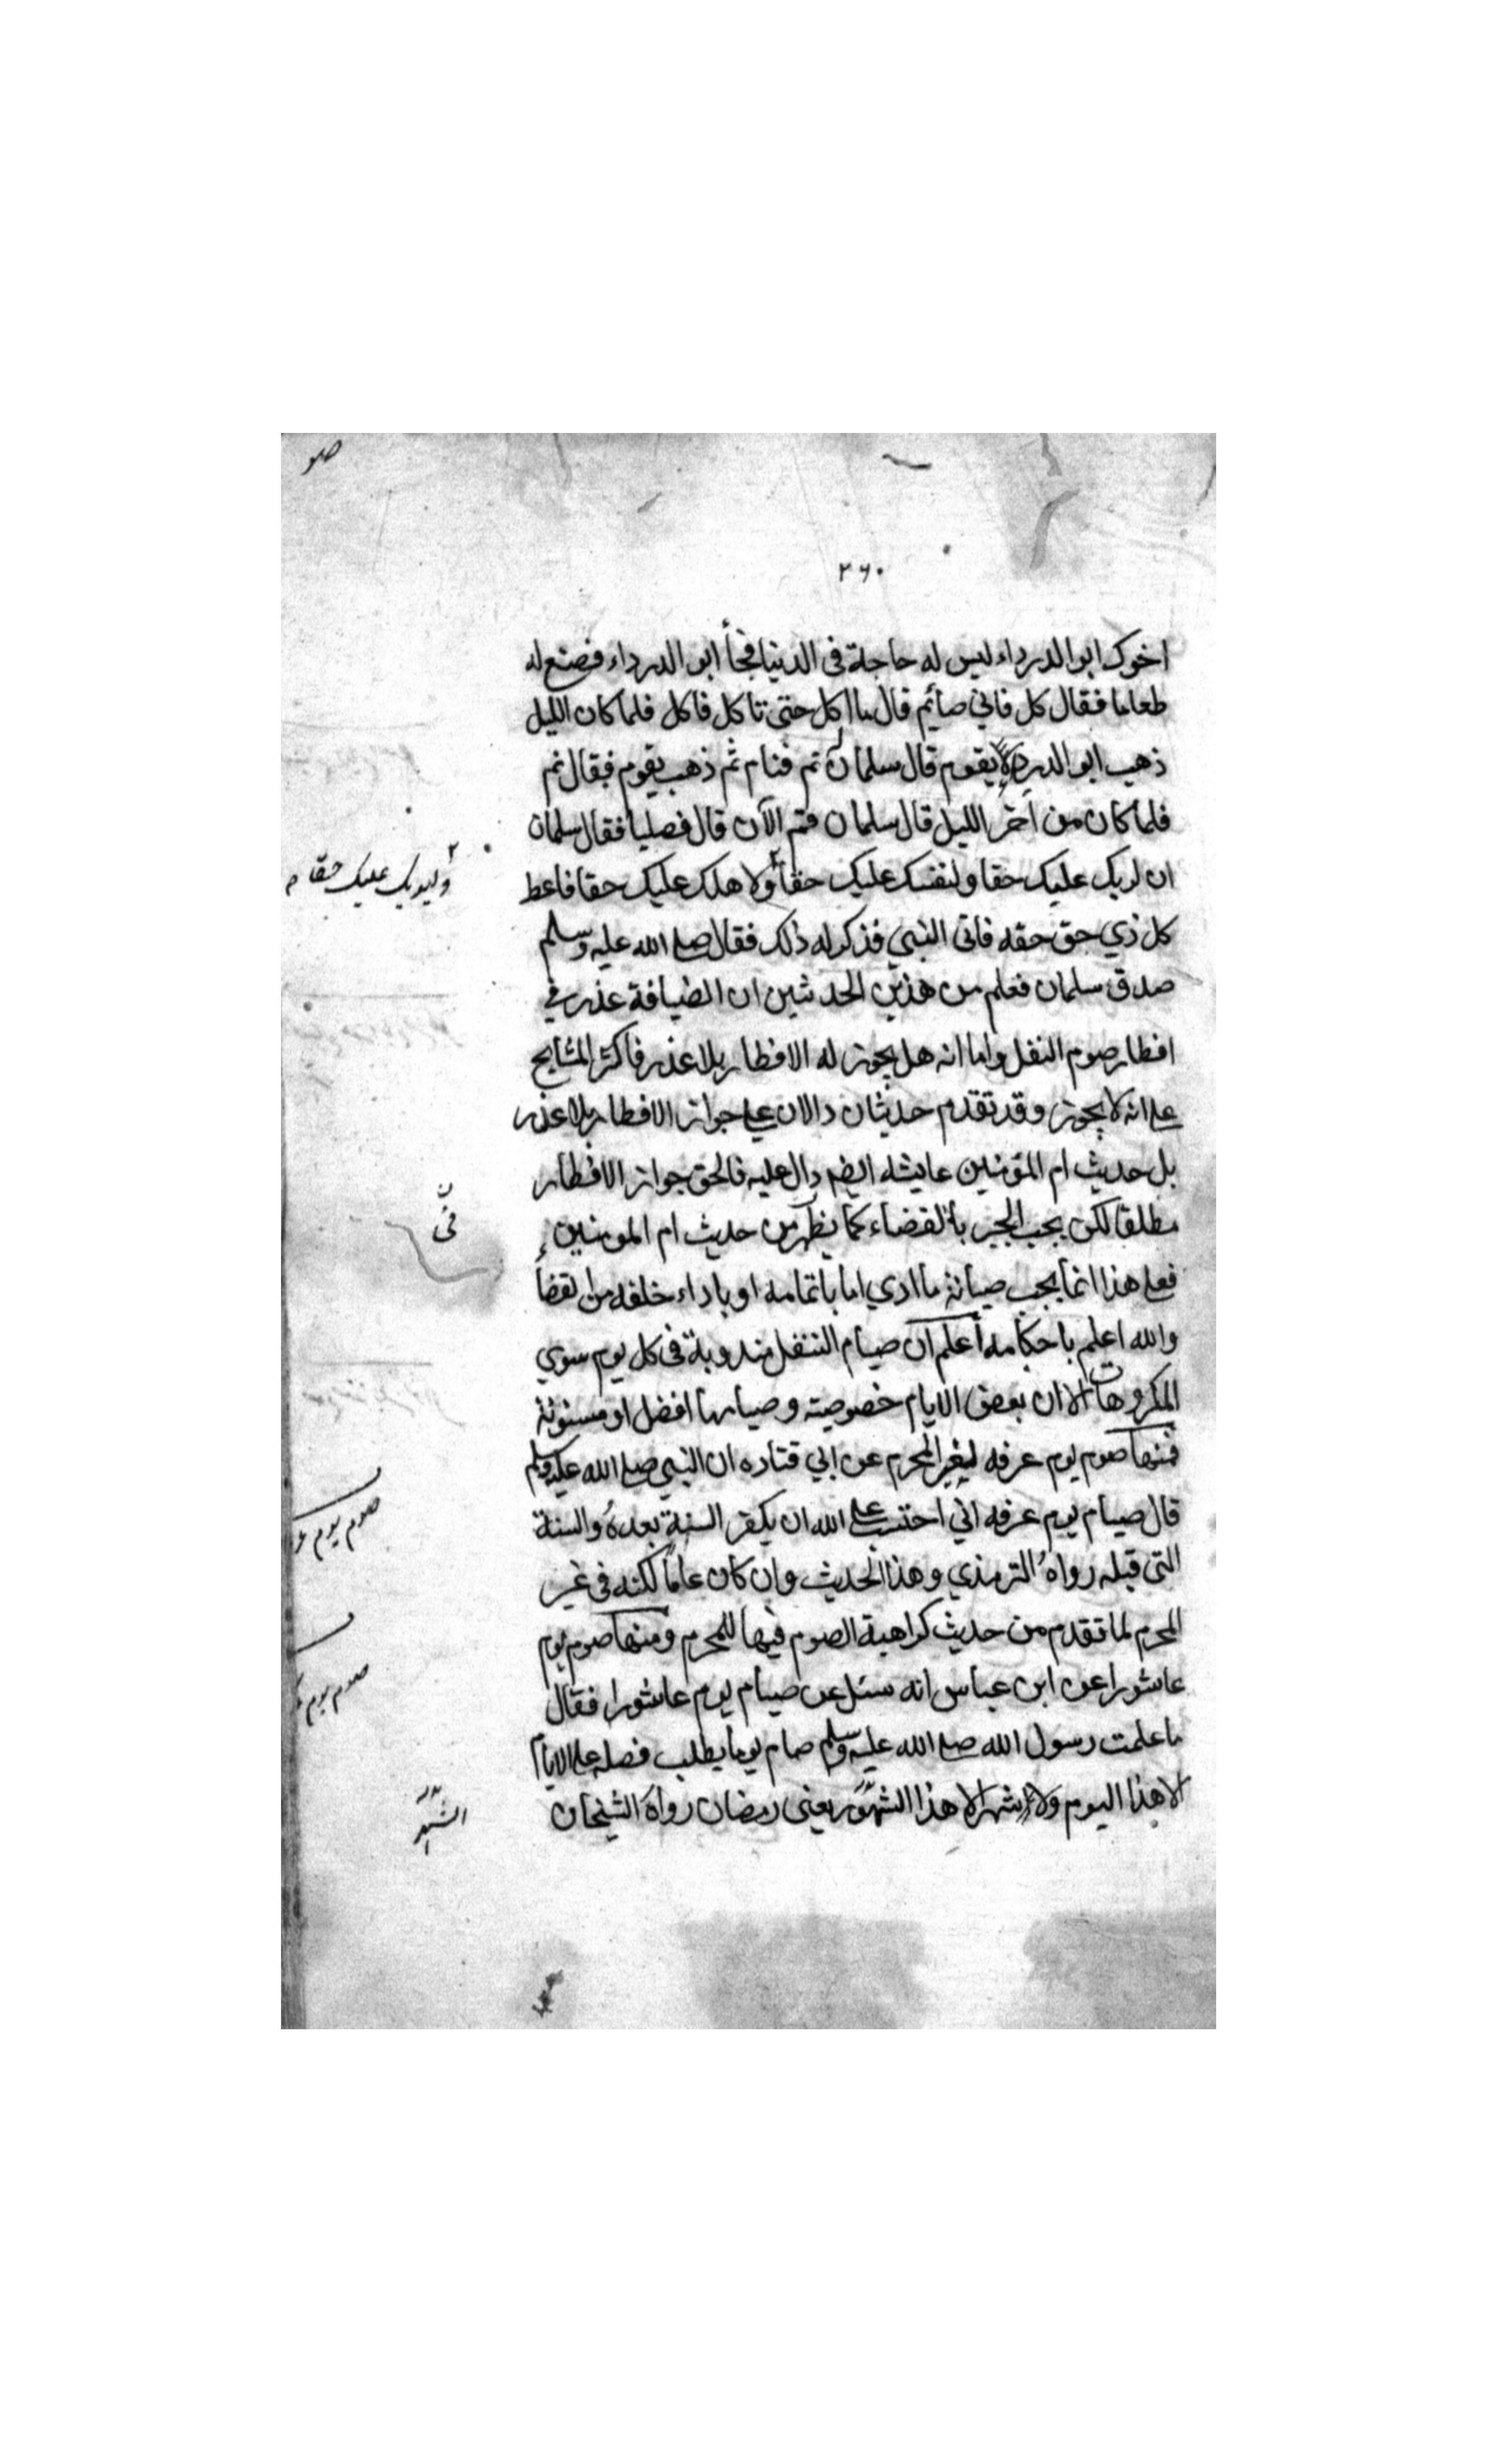 صو
٢٦٠
اخوك ابو الدرداء ليس له حاجة فى الدنيا فجأ ابو الدرداء فصنع له
طعاما فقال كل فاني صائم قال ما اكل حتى تاكل فاكل فلما كان الليل
ذهب ابو الدرداء يقوم قال سلمان نم فنام ثم ذهب يقوم فقال نم
فلما كان من آخر الليل قال سلمان قم الآن قال فصليا فقال سلمان
ان لربك عليك حقا ولنفسك عليك حقا ولاهلك عليك حقا فاعط
كل ذي حق حقه فاتى النبي فذكر له ذلك فقال صلى الله عليه وسلم
صدق سلمان فعلم من هذين الحديثين ان الضيافة عذر في
افطار صوم النفل واما انه هل يجوز له الافطار بلا عذر فاكثر المشايخ
على انه لا يجوز وقد تقدم حديثان دالان على جواز الافطار بلا عذر
بل حديث ام المؤمنين عايشه ايضا دال عليه فالحق جواز الافطار
مطلقا لكن يجب الجبر بالقضاء كما يظهر من حديث ام المومنين
فعلى هذا انما يجب صيانة ما ادي اما باتمامه او باداء خلفه من القضأ
والله اعلم باحكامه اعلم ان صيام التنفل مندوبة فى كل يوم سوي
المكروهات الا ان بعض الايام خصوصيته وصيامها افضل او مسنونة
فمنها صوم يوم عرفه لغير المحرم عن ابي قتاده ان النبي صلى الله عليه وسلم
قال صيام يوم عرفه اني احتسب على الله ان يكفر السنة بعده والسنة
التى قبله رواه الترمذي وهذا الحديث وان كان عاما لكنه فى غير
المحرم لما تقدم من حديث كراهية الصوم فيها للمحرم ومنها صوم يوم
عاشورا عن ابن عباس انه سئل عن صيام يوم عاشورا فقال
ما علمت رسول الله صلى الله عليه وسلم صام يوما يطلب فضله على الايام
الا هذا اليوم ولا شهرا الا هذا الشهر يعنى رمضان رواه الشيخان
عليك حقا
فى
صوم يوم
صوم يوم